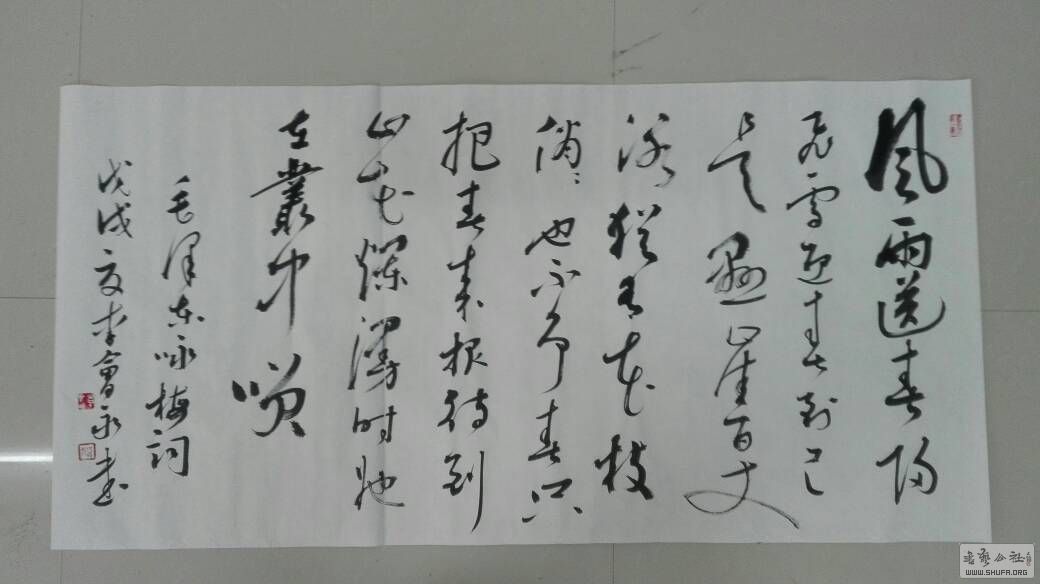 風雨送春归
飞雪迎春到已
是懸崖百丈
冰猶有花枝
俏〻也不争春只
把春来报待到
山花爛漫时她
在叢中笑
毛泽东咏梅词
戊戌夏李會永书
书艺公社
WWW.SHUFA.ORG